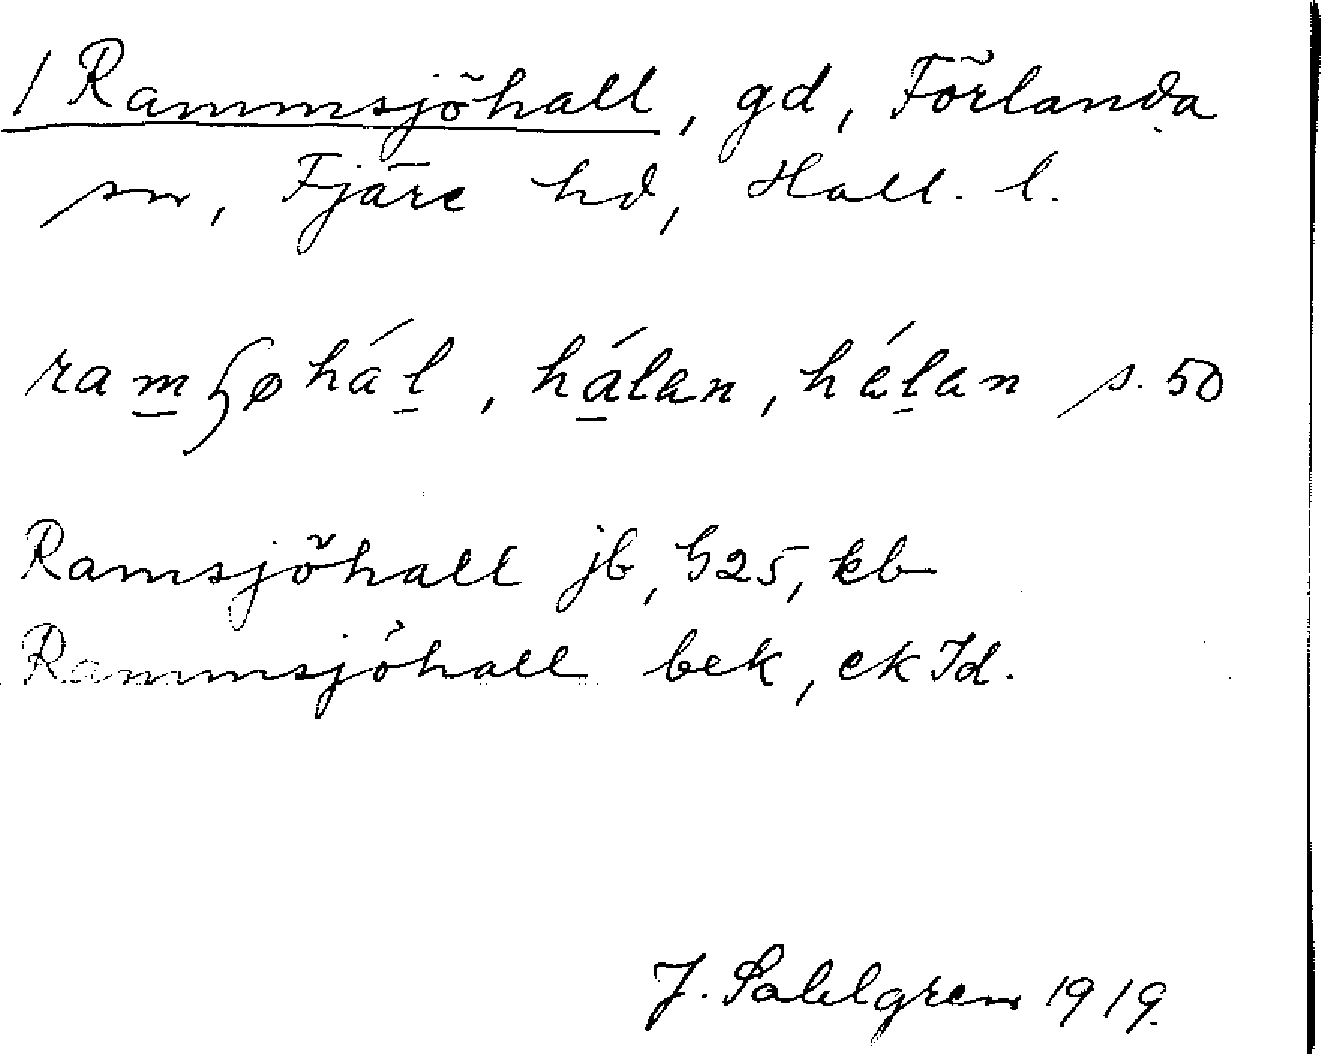 1 Rammsjöhall, gd, Förlanda
sn, Fjäre hd, Hall. l.
ramʂøhál, hálan, hálan s. 50
Ramsjöhall jb, G25, kb
Rammsjöhall bek, ek Id.
J. Sahlgren 1919.